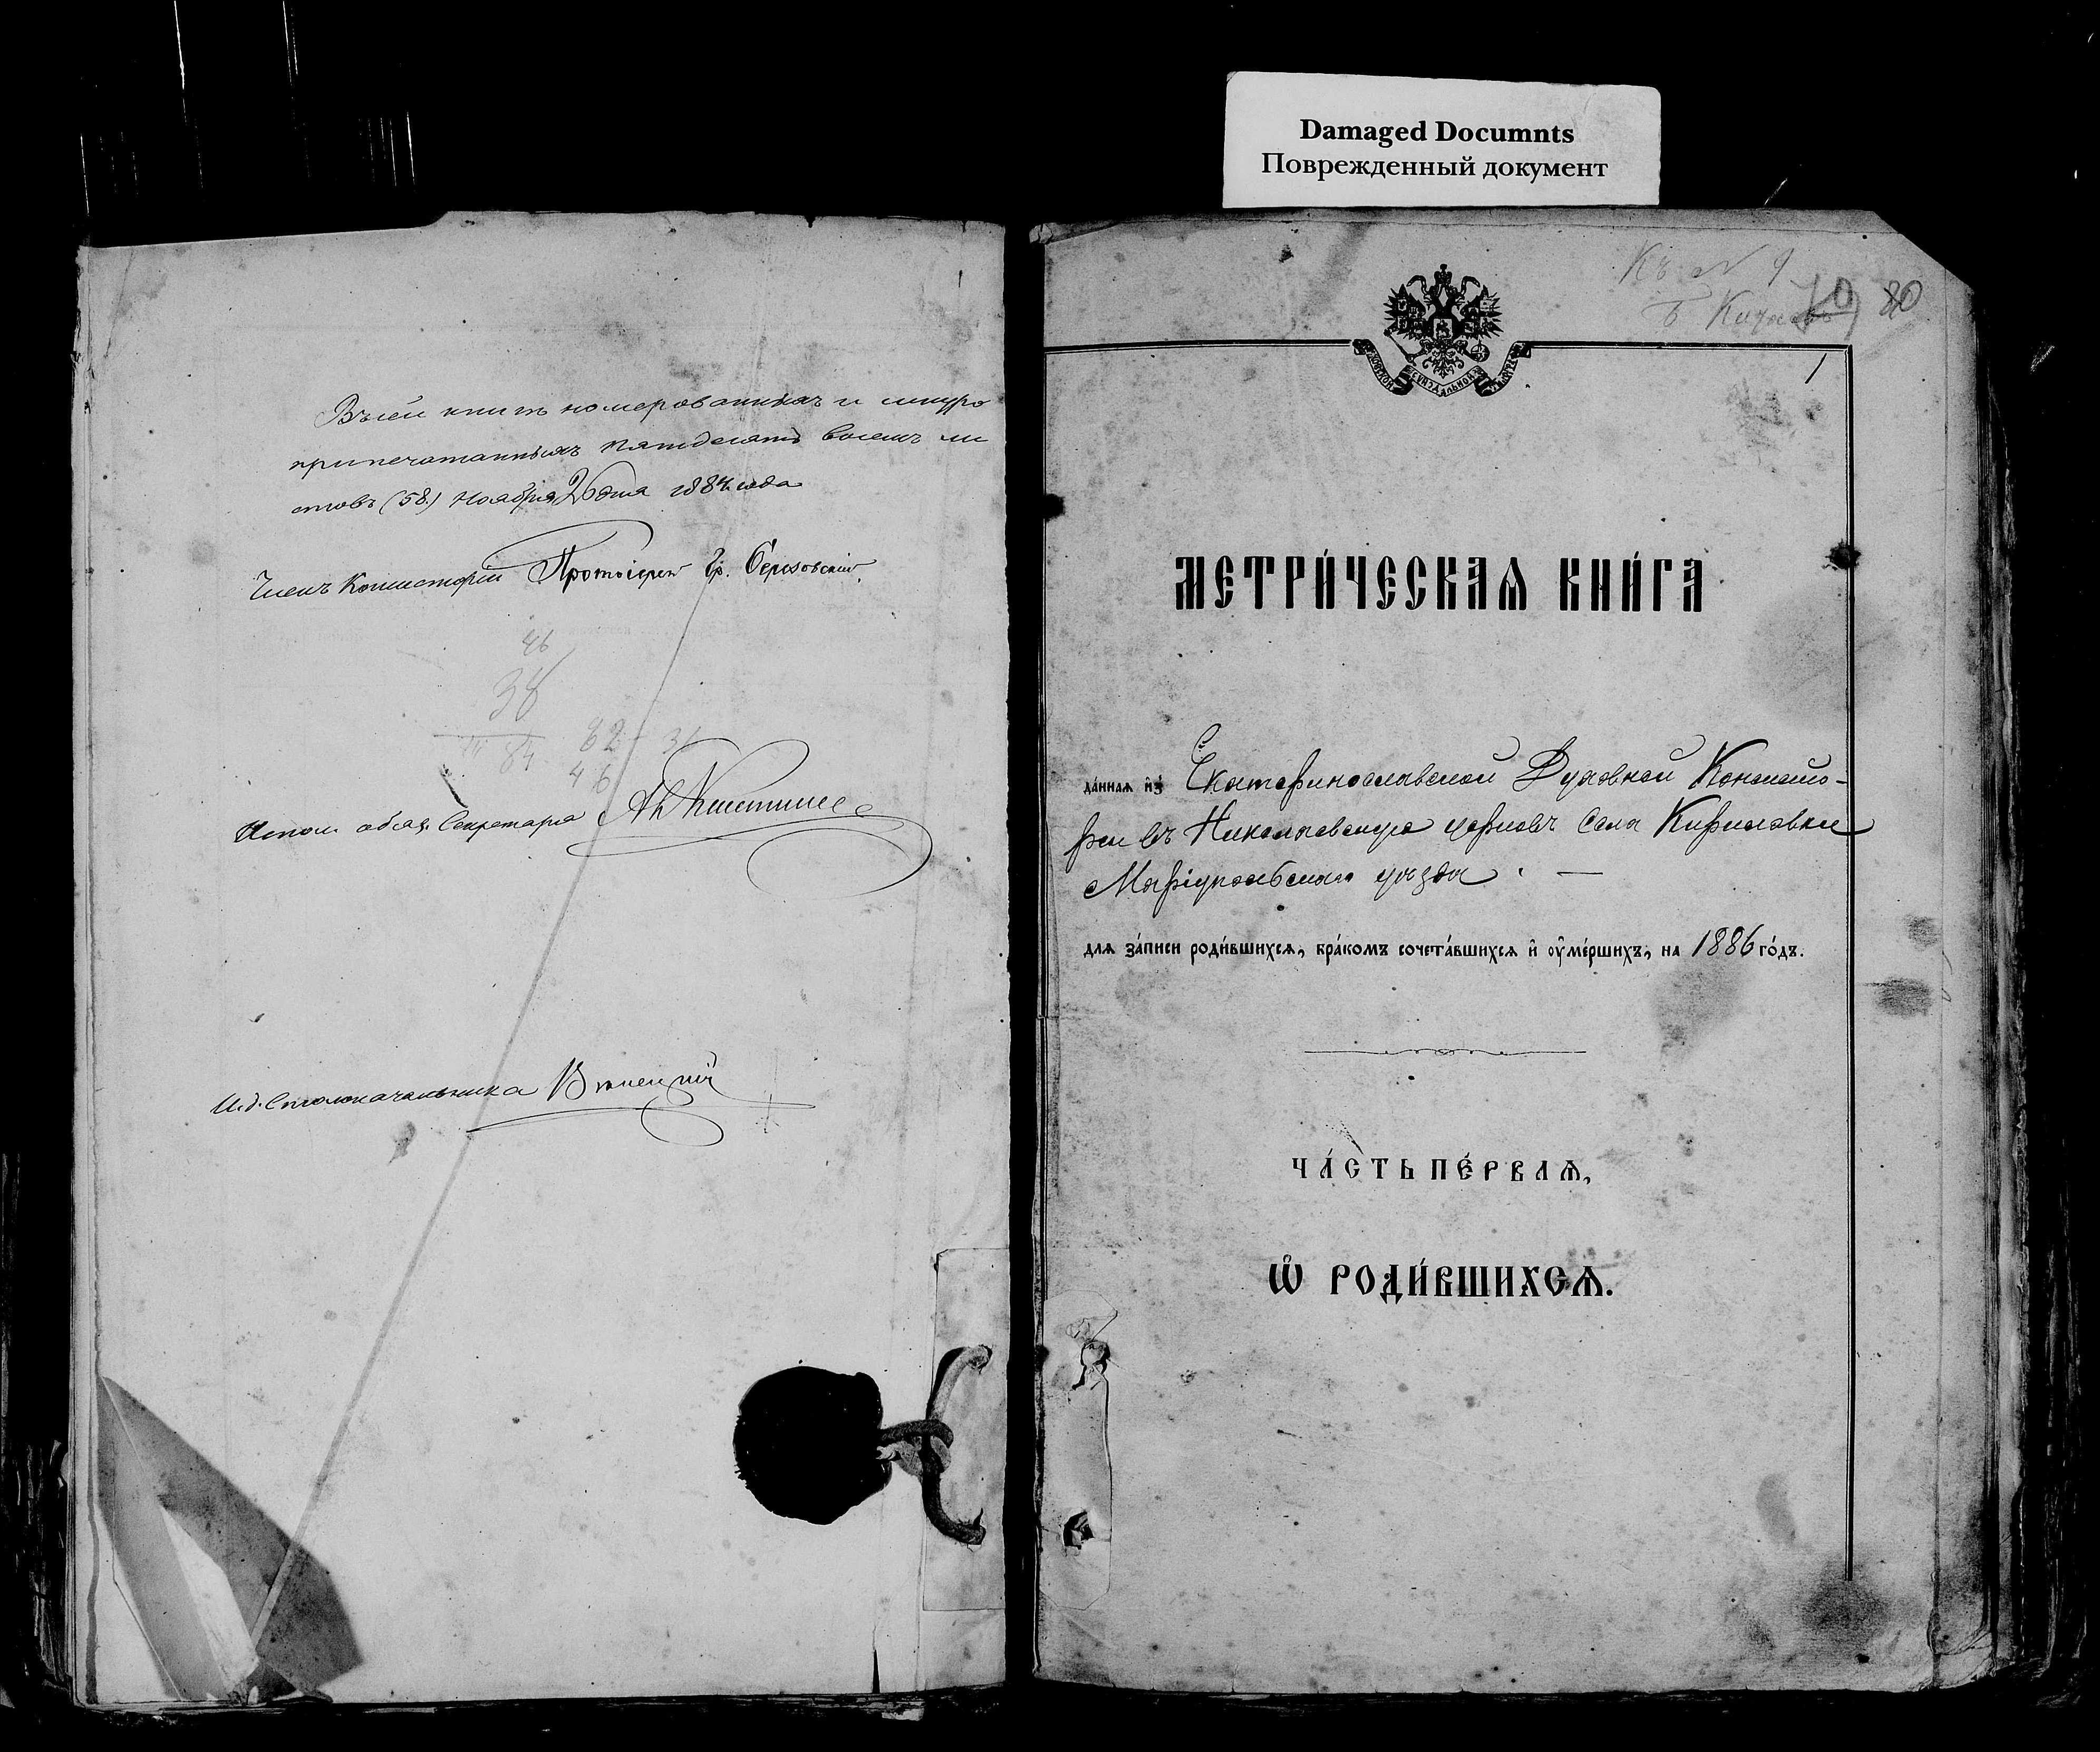 Damaged Documnts
Поврежденный документ
Въ сей книгѣ номерованныхъ и шнуро
припечатанныхъ пятдесятъ восемь ли
стовъ (58.) Ноября 26 дня 1884 года
Членъ Консисторіи Протоіерей Гр.
46
38
84
82 31
46
Испол. обяз. Секретаря
И. д. Столоначальника
Къ № 9
10 80
1
МЕТРИ́ЧЕСКАѦ КНИ́ГА
да́ннаѧ и҆з̾ Екатеринославской Духовной Консисто-
ріи въ Николаевскую церковь села Кириловки
Маріупольскаго уѣзда. —
длѧ за́писи роди́вшихсѧ, бра́комъ сочета́вшихсѧ и҆ ᲂу҆ме́ршихъ, на 1886 го́дъ.
ЧА́СТЬ ПЕ́РВАѦ,
Ѡ҆ РОДИ́ВШИХСѦ.